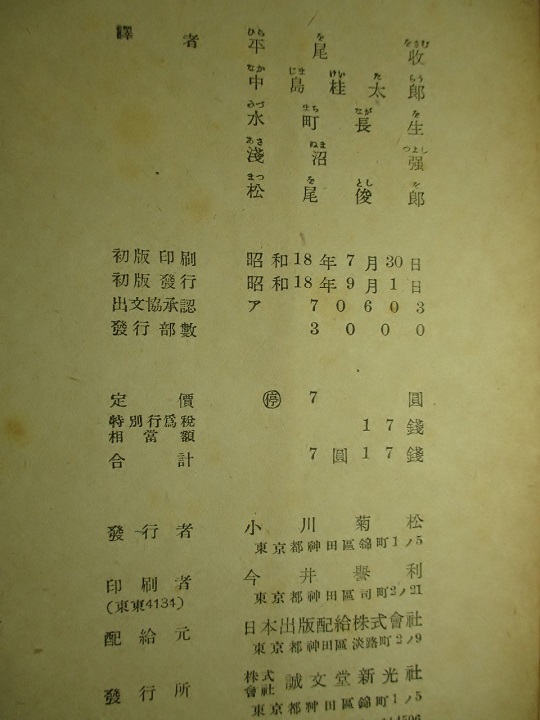 譯者 平尾收
中島桂太郎
水町長生
淺沼强
松尾俊郎
初版印刷 昭和18年7月30日
初版發行 昭和18年9月1日
出文協承認 ア 70603
發行部數 3000
定價 ㊡ 7圓
特別行爲稅相當額 17錢
合計 7圓17錢
發行者 小川菊松
東京都神田區錦町1ノ5
印刷者 今井譽利
(東東4134) 東京都神田區司町2ノ21
配給元 日本出版配給株式會社
東京都神田區淡路町2ノ9
發行所 株式會社 誠文堂新光社
東京都神田區錦町1ノ5